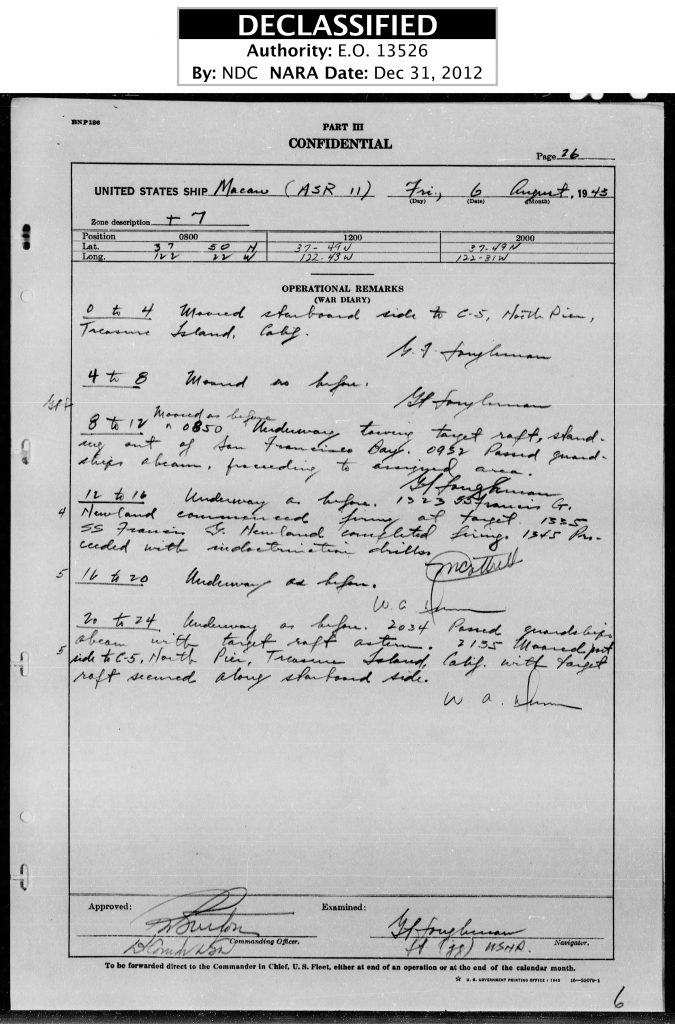 DECLASSIFIED
Authority: E.O. 13526
By: NDC NARA Date: Dec 31, 2012
BNP136
PART III
CONFIDENTIAL
Page 26
UNITED STATES SHIP Macaw (ASR 11) Fri., 6 August, 1943
(Day) (Date) (Month)
Zone description + 7
Position 0800 1200 2000
Lat. 37 50 N 37-49N 37-49N
Long. 122 22 W 122-43W 122-31W
OPERATIONAL REMARKS
(WAR DIARY)
0 to 4 Moored starboard side to C-5, North Pier,
Treasure Island, Calif.
4 to 8 Moored as before.
Moored as before
8 to 12 ^ 0850 Underway towing target raft, stand-
ing out of San Francisco Bay. 0952 Passed guard-
ships abeam, proceeding to assigned area.
12 to 16 Underway as before. 1323 SS Francis G.
4 Newland commenced firing at target. 1335
SS Francis G. Newland completed firing. 1345 Pro-
ceeded with indoctrination drills.
5 16 to 20 Underway as before.
W. A. Dunn
20 to 24 Underway as before. 2034 Passed guardships
abeam with target raft astern. 2135 Moored port
5 side to C-5, North Pier, Treasure Island, Calif. with target
raft secured along starboard side.
W. A. Dunn
Approved: Examined:
Commanding Officer.
Lt (jg) USNR. Navigator.
To be forwarded direct to the Commander in Chief, U. S. Fleet, either at end of an operation or at the end of the calendar month.
☆ U. S. GOVERNMENT PRINTING OFFICE : 1943
6